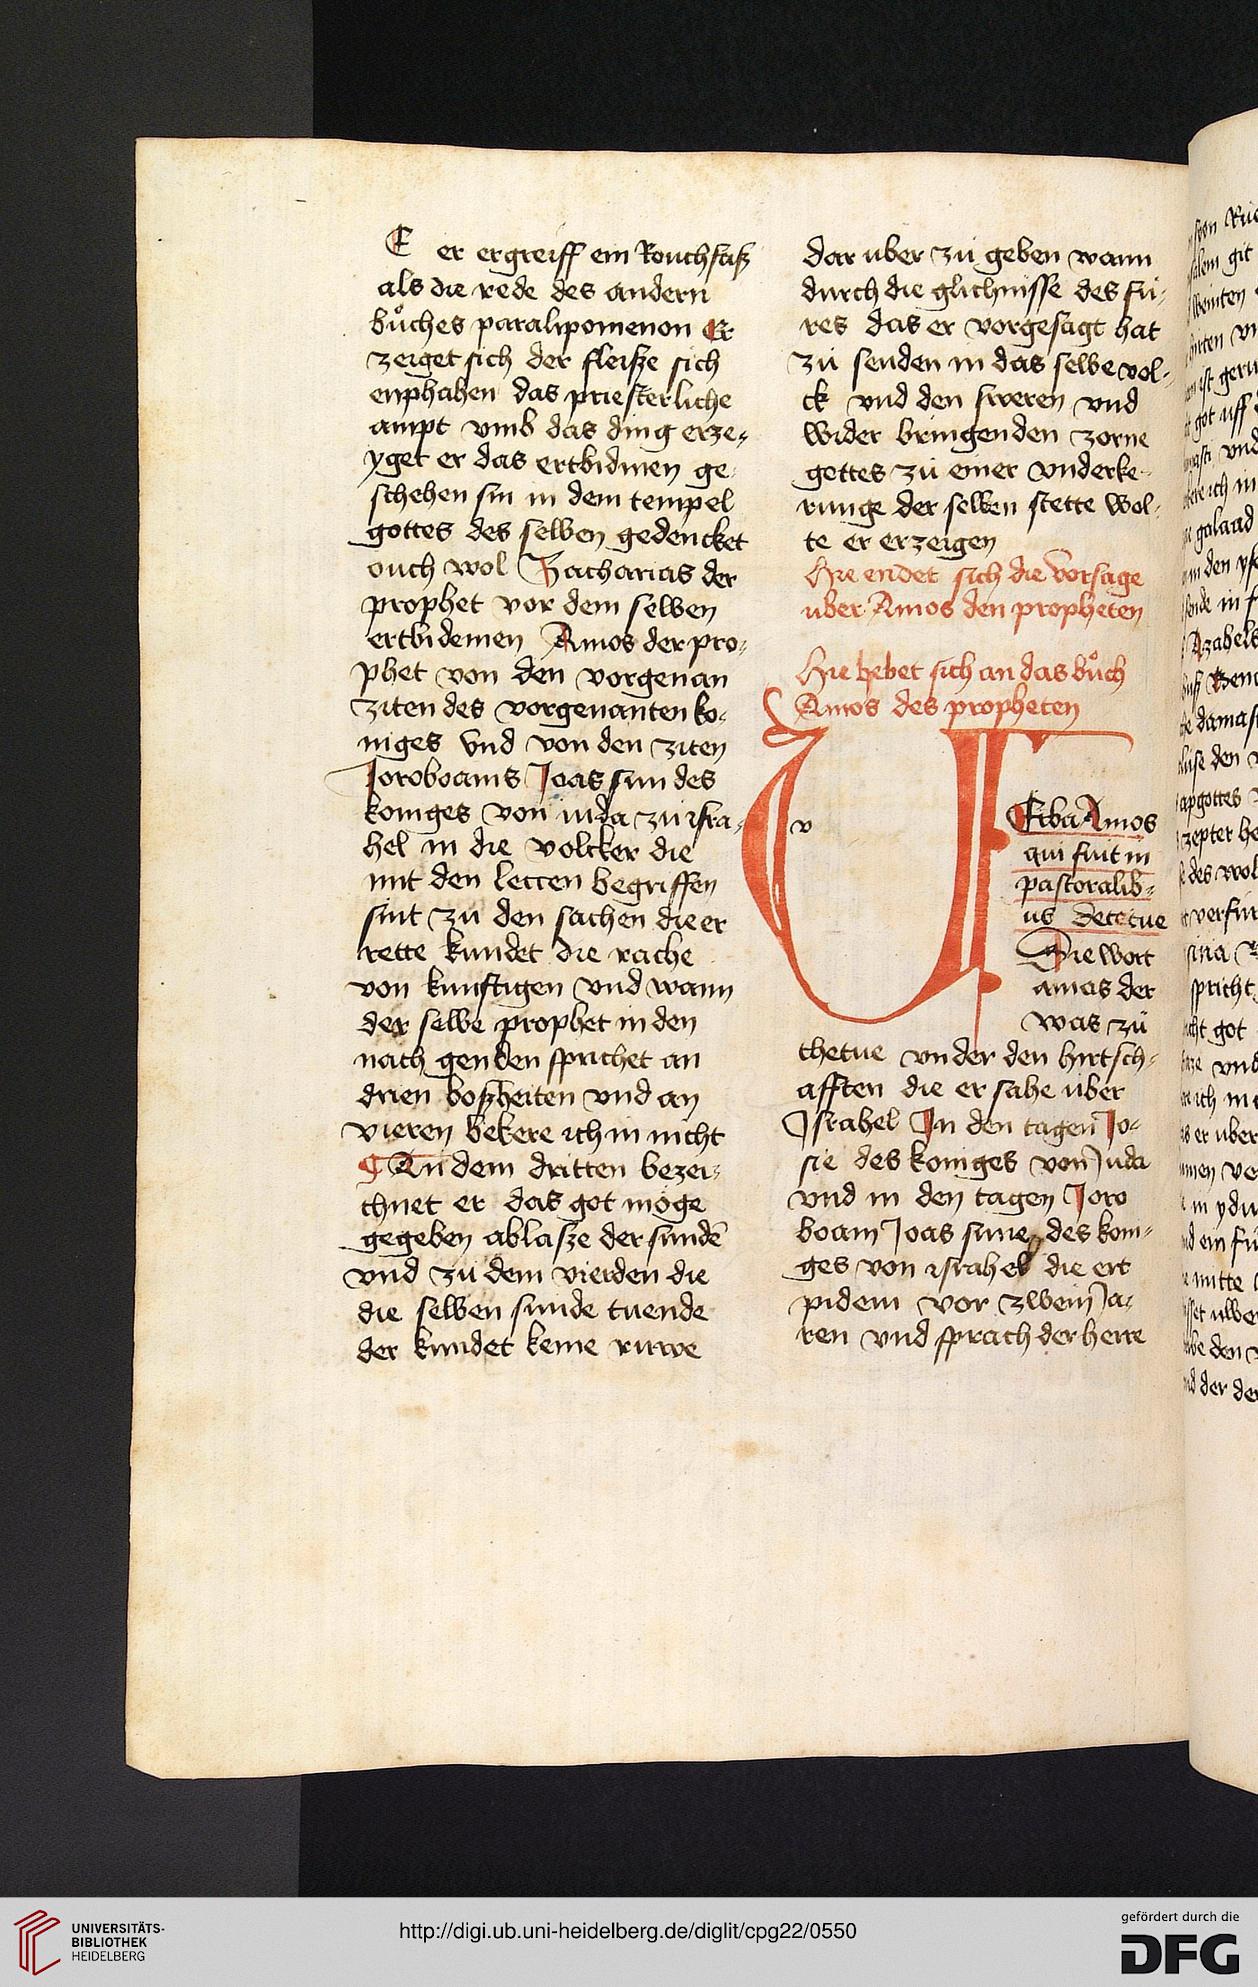 E er ergreiff ein Rouchfasz
als die rede des andern
buͦches paralipomenon Er
zeiget sich der fleisze sich
enphahen das priesterliche
ampt vmb das ding erze-
yget er das ertbidmen ge
schehen sin in dem tempel
gottes des selben gedencket
ouch wol Zacharias der
prophet vor dem selben
ertbidemen Amos der pro-
phet von den vorgenan
ziten des vorgenanten ko-
niges vnd von den ziten
Joroboams Joas sun des
koniges von iuda zu isra-
hel in die volcker die
mit den leccen begriffen
sint zu den sachen die er
rette kundet die rache
von kunftigen vnd wann
der selbe prophet in den
nach genden sprichet an
drien boszheiten vnd an
vieren bekere ich in nicht
¶ An dem dritten bezei-
chnet er das got moge
gegeben ablasze der sunde
vnd zu dem vierden die
die selben sunde tuende
der kundet keine ruwe
dar uber zu geben wann
durch die glichnisse des fu-
res das er vorgesagt hat
zu senden in das selbe vol-
ck vnd den sweren vnd
wider bringenden zorne
gottes zu einer vnderke-
runge der selben stette wol-
te er erzeigen
Hie endet sich die vorsage
uber Amos den propheten
Hie hebet sich an das buͦch
Amos des propheten
V
v
Erba Amos
qui fuit in
pastoralib-
us Detetue
Die wort
amas der
was zu
thetue vnder den hirtsch-
afften die er sahe uber
Israhel In den tagen Jo-
sie des koniges von Juda
vnd in den tagen Joro
boam Joas sune des kon-
ges von israhel die ert
pidem vor zwein Ja-
ren vnd sprach der herre
UNIVERSITÄTS-
BIBLIOTHEK
HEIDELBERG
http://digi.ub.uni-heidelberg.de/diglit/cpg22/0550
gefördert durch die
DFG